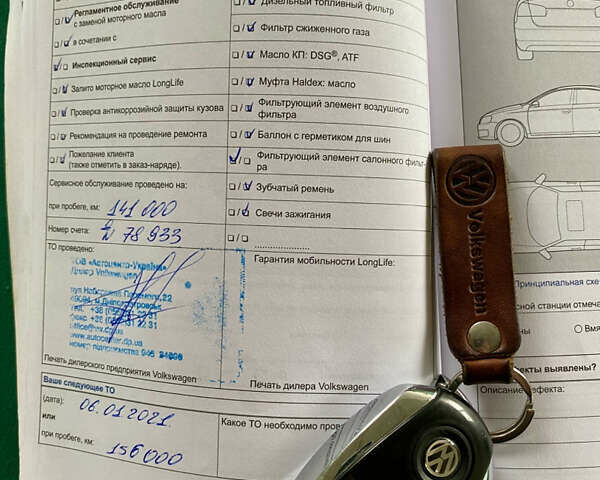 Регламентное обслуживание
с заменой моторного масла
в сочетании с
Инспекционный сервис
Залито моторное масло LongLife
Проверка антикоррозийной защиты кузова
Рекомендация на проведение ремонта
Пожелание клиента
(также отметить в заказ-наряде).
Сервисное обслуживание проведено на:
при пробеге, км: 141 000
Номер счета: 78 933
ТО проведено:
ТОВ «Автоцентр-Україна»
Дилер Volkswagen
вул Набережна 22
www.autocenter.dp.ua
Печать дилерского предприятия Volkswagen
Ваше следующее ТО
(дата): 06.01.2021
или
при пробеге, км: 156 000
Дизельный топливный фильтр
Фильтр сжиженного газа
Масло КП: DSG®, ATF
Муфта Haldex: масло
Фильтрующий элемент воздушного
фильтра
Баллон с герметиком для шин
Фильтрующий элемент салонного фильт-
ра
Зубчатый ремень
Свечи зажигания
Гарантия мобильности LongLife:
Печать дилера Volkswagen
Какое ТО необходимо
Volkswagen
Принципиальная
сной станции
Описание дефекта: